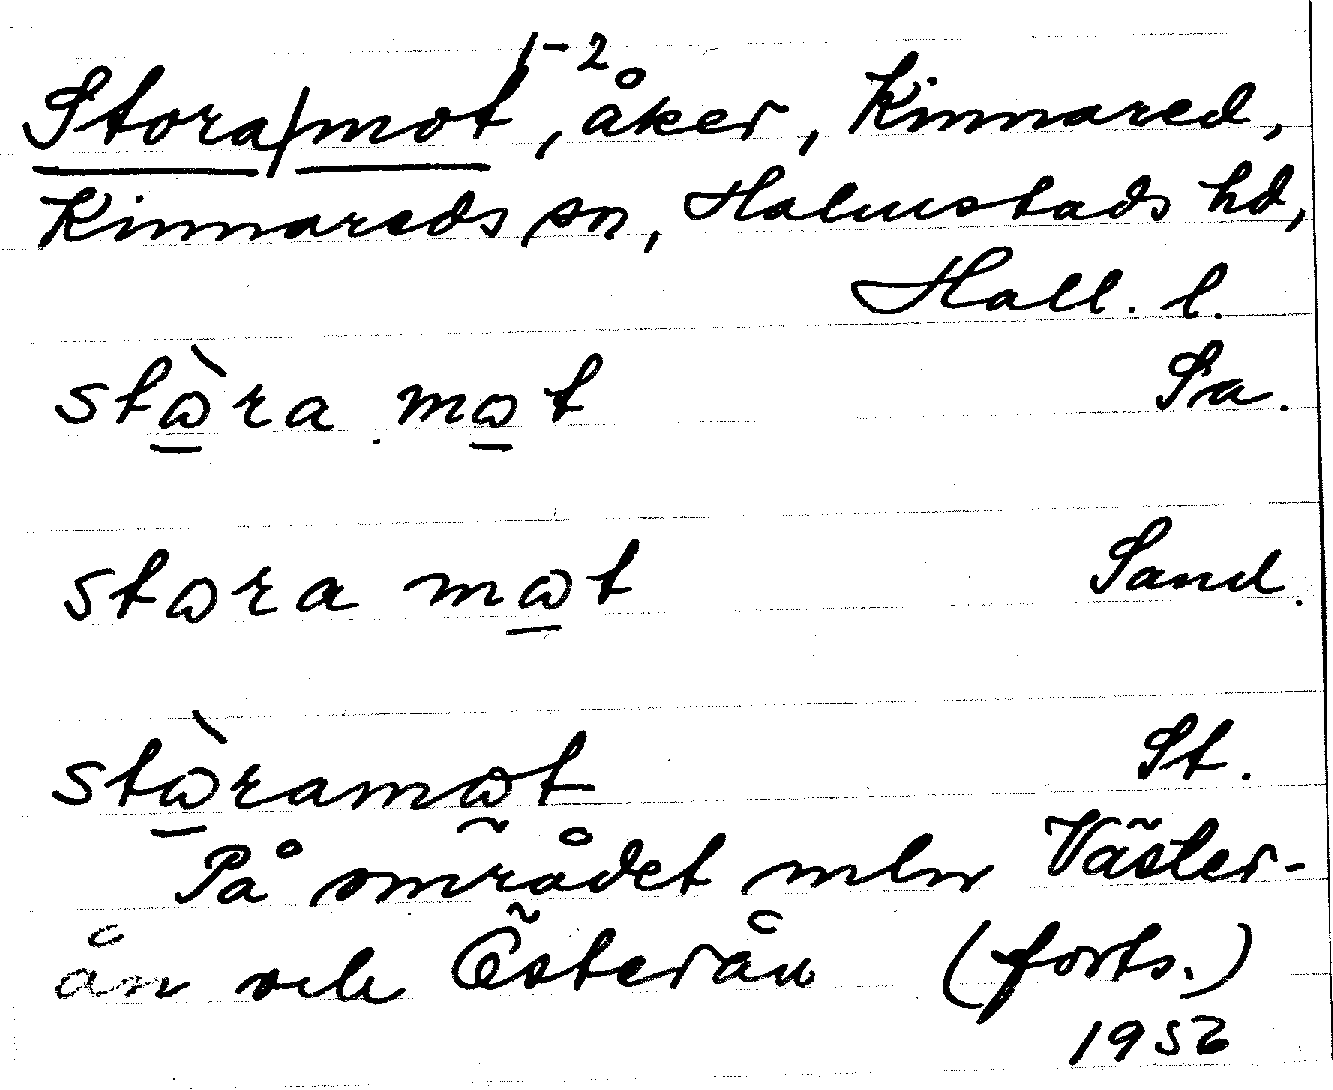 Stora/mot 1-2, åker, Kinnared,
Kinnareds sn, Halmstads hd,
Hall. l.
stὼra mωt Sa.
stωra mωt Sand.
stὼramωt St.
På området mln Väster-
ån och Österån (forts.)